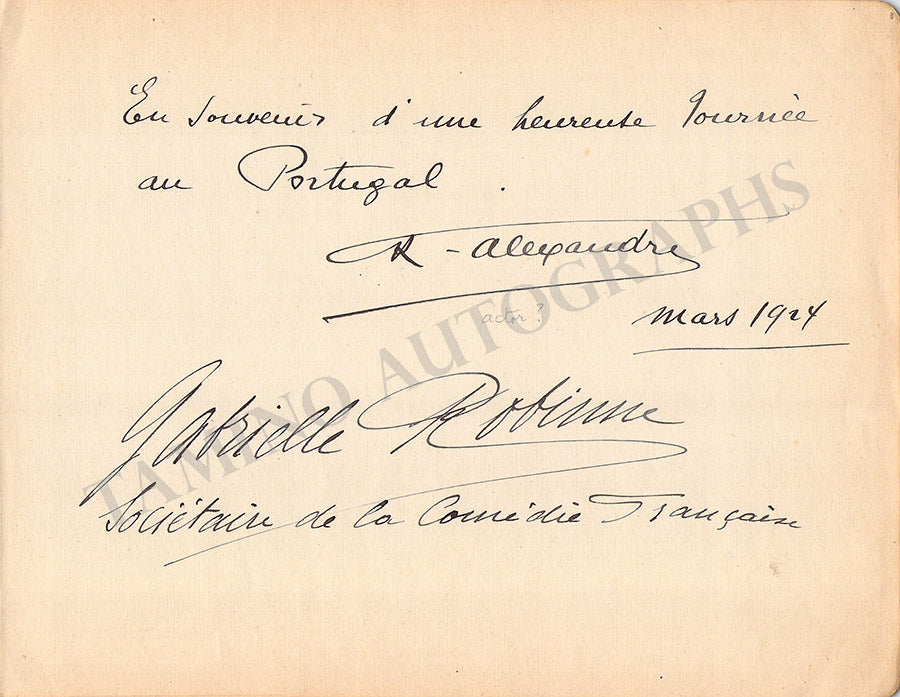 En souvenir d'une heureuse Tournée
au Portugal.
R - Alexandre
actor?
mars 1924
Gabrielle Robinne
Sociétaire de la Comédie Française
TAMINO AUTOGRAPHS